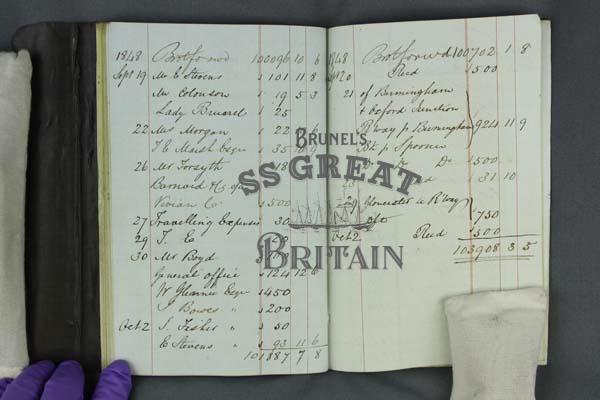 1848 Brotforwd 100096 10 6
Sept 19 Mr E Stevens 101 11 8
Mr 19 5 3
Lady 25
22 Mrs Morgan 22
T. E. Marsh Esqre 35 10 9
26 Mr Forsyth 18
Barnard
Vivian Co 500
27 Travelling Expenses 30
29 T. E
30 Mr Boyd
General office 124 12
W Glennie Esqre 450
J Bowes " 200
Oct 2 J. Fisher " 50
E Stevens " 93 11 6
101887 7 8
1848 Brotforwd 100702 1 8
Sept 20 Recd 500
21 of Birmingham
& Oxford Junction
R Way p Birmingham 924 11 9
Bk p Spooner
Do 500
31 10
Gloucester R Way
750
Oct 2 Recd 500
103908 3 5
BRUNEL'S
SS GREAT
BRITAIN